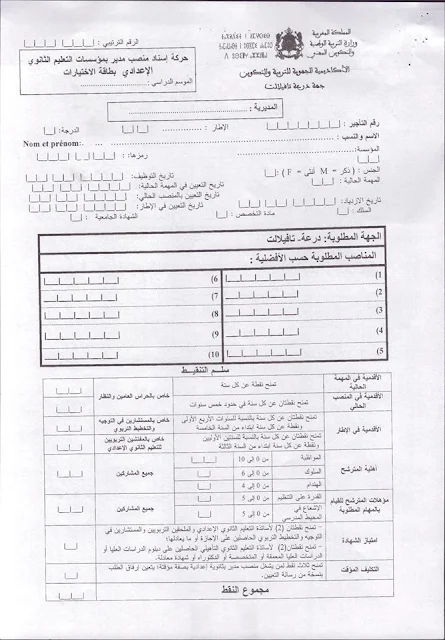 المملكة المغربية
وزارة التربية الوطنية
والتكوين المهني
الأكاديمية الجهوية للتربية والتكوين
جهة درعة تافيلالت
الرقم الترتيبي :
حركة إسناد منصب مدير بمؤسسات التعليم الثانوي
الإعدادي بطاقة الاختيارات
الموسم الدراسي :
المديرية :
رقم التأجير : الإطار : الدرجة :
الاسم والنسب : Nom et prénom:
المؤسسة: رمزها:
الجنس : ( ذكر = M أنثى = F ) : تاريخ التوظيف:
المهمة الحالية: تاريخ التعيين في المهمة الحالية:
تاريخ التعيين بالمنصب الحالي:
تاريخ الازدياد: تاريخ التعيين في الإطار:
السلك : مادة التخصص : الشهادة الجامعية :
الجهة المطلوبة: درعة- تافيلالت
المناصب المطلوبة حسب الأفضلية :
1) 6)
2) 7)
3) 8)
4) 9)
5) 10)
سلم التنقيط
الأقدمية في المهمة الحالية تمنح نقطة عن كل سنة خاص بالحراس العامين والنظار
الأقدمية في المنصب الحالي تمنح نقطتان عن كل سنة في حدود خمس سنوات
الأقدمية في الإطار تمنح نقطتان عن كل سنة بالنسبة للسنوات الأربع الأولى ونقطة عن كل سنة ابتداء من السنة الخامسة خاص بالمستشارين في التوجيه والتخطيط التربوي
تمنح نقطتان عن كل سنة بالنسبة للسنتين الأوليين ونقطة عن كل سنة ابتداء من السنة الثالثة خاص بالمفتشين التربويين للتعليم الثانوي الإعدادي
أهلية المترشح المواظبة من 0 إلى 10 جميع المشاركين
السلوك من 0 إلى 6
الهندام من 0 إلى 4
مؤهلات المترشح للقيام بالمهام المطلوبة القدرة على التنظيم من 0 إلى 5 جميع المشاركين
الإشعاع في المحيط المدرسي من 0 إلى 5
امتياز الشهادة - تمنح نقطتان (2) لأساتذة التعليم الثانوي الإعدادي والملحقين التربويين والمستشارين في
التوجيه والتخطيط التربوي الحاصلين على الإجازة أو ما يعادلها؛
- تمنح نقطتان(2) لأساتذة التعليم الثانوي التأهيلي الحاصلين على دبلوم الدراسات العليا أو
الدراسات العليا المعمقة أو المتخصصة أو الدكتوراه أو شهادة معادلة.
التكليف المؤقت تمنح ثلاث نقط لمن يشغل منصب مدير بثانوية إعدادية بصفة مؤقتة؛ يتعين إرفاق الطلب
بنسخة من رسالة التعيين.
مجموع النقط